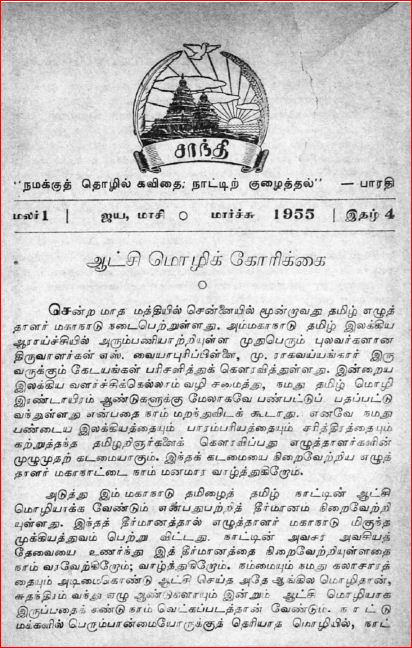 சாந்தி
"நமக்குத் தொழில் கவிதை; நாட்டிற் குழைத்தல்" — பாரதி
மலர் 1 | ஜய, மாசி ○ மார்ச்சு 1955 | இதழ் 4
ஆட்சி மொழிக் கோரிக்கை
சென்ற மாத மத்தியில் சென்னையில் மூன்றுவது தமிழ் எழுத்
தாளர் மகாநாடு நடைபெற்றுள்ளது. அம்மகாநாடு தமிழ் இலக்கிய
ஆராய்ச்சியில் அரும்பணியாற்றியுள்ள முதுபெரும் புலவர்களான
திருவாளர்கள் எஸ். வையாபுரிப்பிள்ளை, மு. ராகவய்யங்கார் இரு
வருக்கும் கேடயங்கள் பரிசளித்துக் கௌரவித்துள்ளது. இன்றைய
இலக்கிய வளர்ச்சிக்கெல்லாம் வழி சமைத்து, நமது தமிழ் மொழி
இரண்டாயிரம் ஆண்டுகளுக்கு மேலாகவே பண்பட்டுப் பதப்பட்டு
வந்துள்ளது என்பதை நாம் மறந்துவிடக் கூடாது. எனவே நமது
பண்டைய இலக்கியத்தையும் பாரம்பரியத்தையும் சரித்திரத்தையும்
கற்றுத்தந்த தமிழறிஞர்களைக் கௌரவிப்பது எழுத்தாளர்களின்
முழுமுதற் கடமையாகும். இந்தக் கடமையை நிறைவேற்றிய எழுத்
தாளர் மகாநாட்டை நாம் மனமார வாழ்த்துகிறோம்.
அடுத்து இம் மகாநாடு தமிழைத் தமிழ் நாட்டின் ஆட்சி
மொழியாக்க வேண்டும் என்பதுபற்றித் தீர்மானம் நிறைவேற்றி
யுள்ளது. இந்தத் தீர்மானத்தால் எழுத்தாளர் மகாநாடு மிகுந்த
முக்கியத்துவம் பெற்று விட்டது. நாட்டின் அவசர அவசியத்
தேவையை உணர்ந்து இத் தீர்மானத்தை நிறைவேற்றியுள்ளதை
நாம் வரவேற்கிறோம்; வாழ்த்துகிறோம். நம்மையும் நமது கலாசாரத்
தையும் அடிமைகொண்டு ஆட்சி செய்த அதே ஆங்கில மொழிதான்,
சுதந்திரம் வந்து எழு ஆண்டுகளாயும் இன்றும் ஆட்சி மொழியாக
இருப்பதைக் கண்டு நாம் வெட்கப்படத்தான் வேண்டும். நாட்டு
மக்களில் பெரும்பான்மையோருக்குத் தெரியாத மொழியில், நாட்